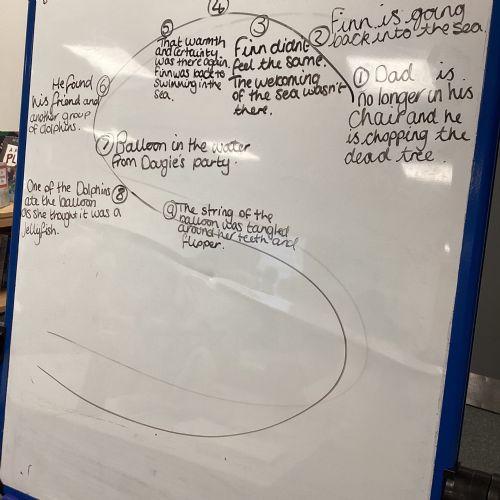 ① Dad is
no longer in his
chair and he
is chopping the
dead tree.
② Finn is going
back into the sea.
③
Finn didn't
feel the same.
The welcoming
of the sea wasn't
there.
④
⑤
That warmth
and certainty
was there again.
Finn was back to
swimming in the
sea.
He found ⑥
his friend and
another group
of dolphins.
⑦ Balloon in the water
from Dougie's party.
One of the Dolphins ⑧
ate the balloon
as she thought it was a
jellyfish.
⑨ The string of the
balloon was tangled
around her teeth and
flipper.